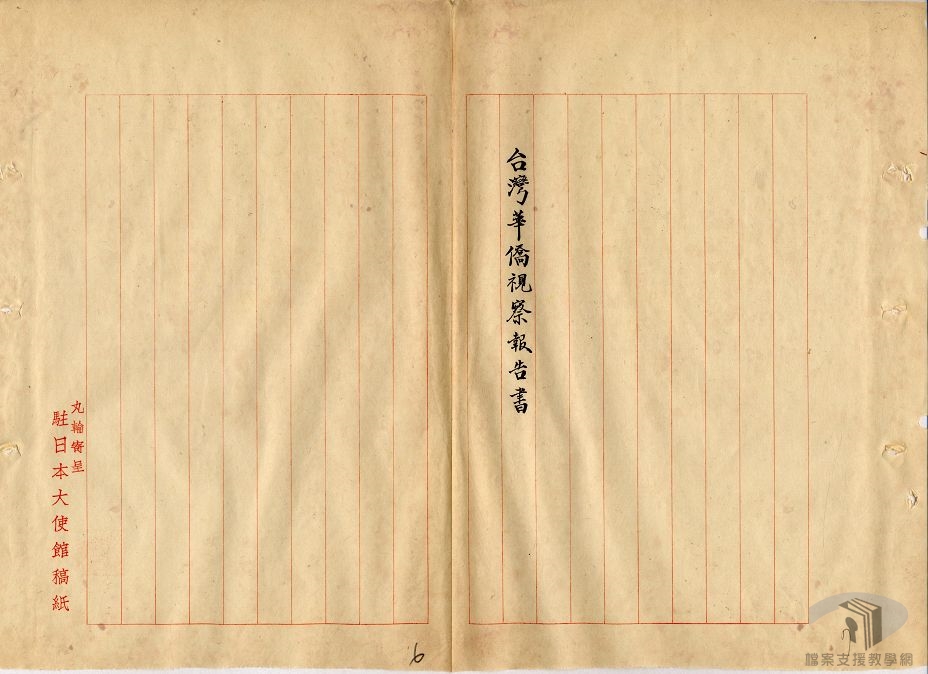 台灣華僑視察報告書
丸輪寄呈
駐日本大使館稿紙
6
檔案支援教學網